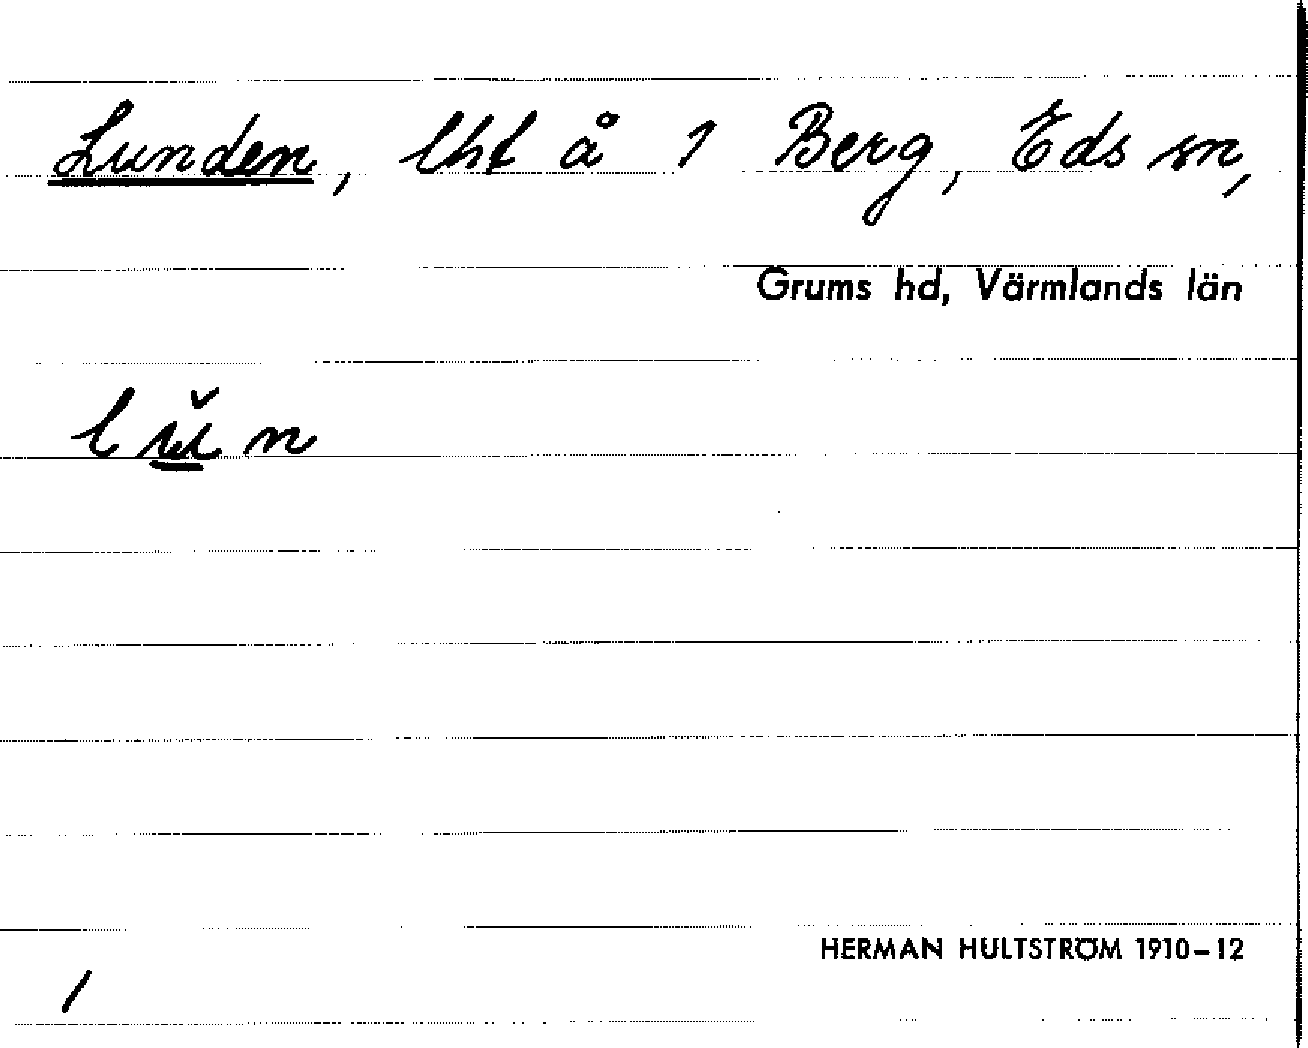 Lunden, lht å 1 Berg, Eds sn,
Grums hd, Värmlands län
HERMAN HULTSTRÖM 1910–12